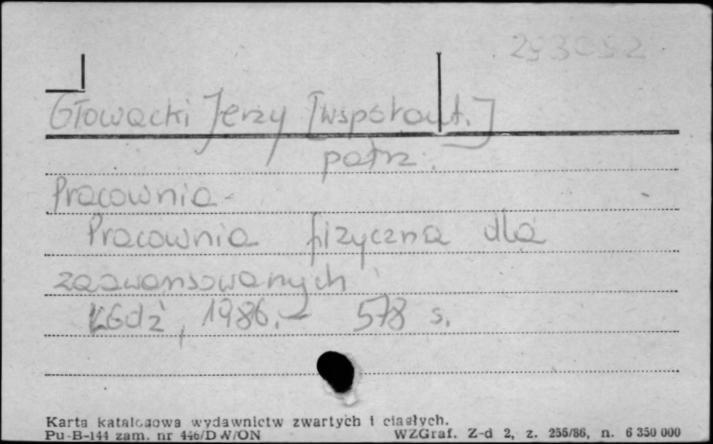 253052
Głowacki Jerzy [współaut.]
patrz:
Pracownia
Pracownia fizyczna dla
zaawansowanych
Łódź, 1986.- 578 s.
Karta katalogowa wydawnictw zwartych i ciągłych.
Pu-B-144 zam. nr 446/DW/ON WZGraf. Z-d 2, z. 256/86, n. 6 350 000